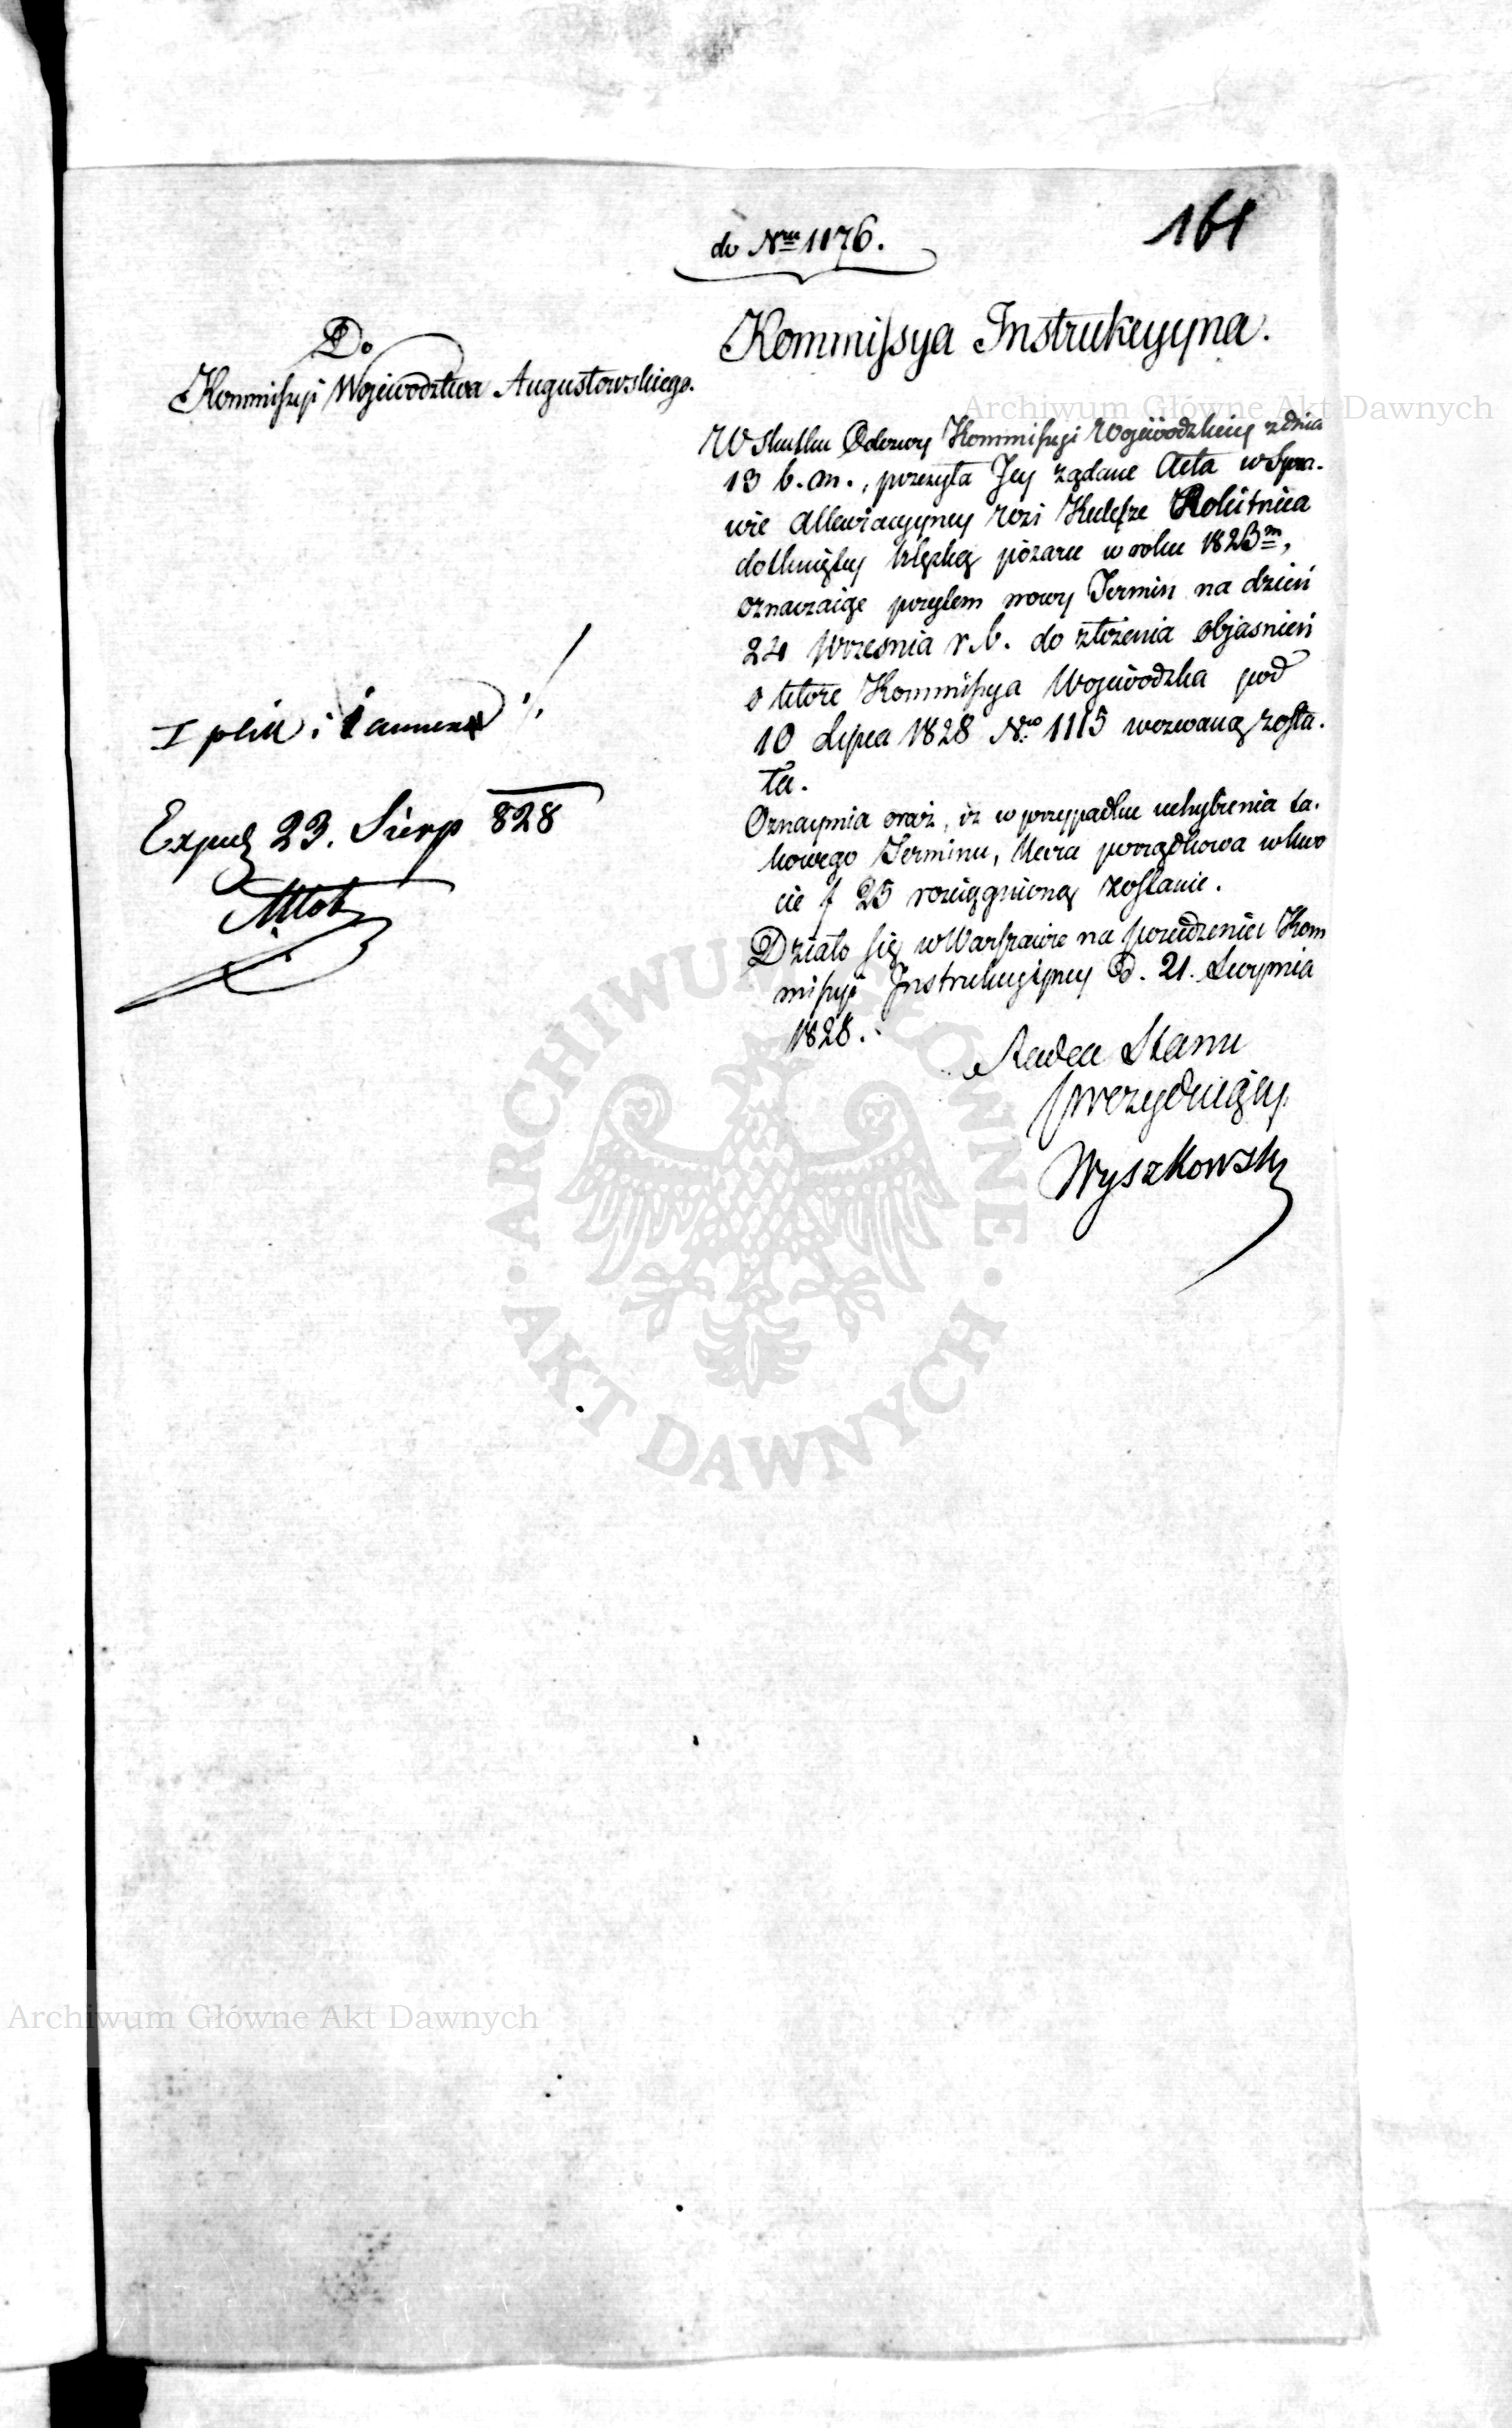 161
do Nru 1176.
Kommissya Instrukcyyna.
Do
Kommissyi Województwa Augustowskiego.
W skutku Odezwy Kommissyi Wojewódzkiey z dnia
13 b. m., przesyła Jey żądane Acta w Spra-
wie Allewiacyyney Wsi Kulesze Rokitnica
dotkniętey klęską pożaru w roku 1823m,
oznaczaiąc przytem nowy Termin na dzień
24 Wrzesnia r. b. do złożenia objasnień
o które Kommissya Wojewódzka pod
10 Lipca 1828 No 1115 wezwaną zosta-
ła.
Oznaymia oraz, iż w przypadku uchybienia ta-
kowego Terminu, kara porządkowa w kwo
cie f 25 rozciągnioną zostanie.
Działo się w Warszawie na posiedzeniu Kom
missyi Instrukcyyney D. 21. Sierpnia
1828.
Radca Stanu
prezyduiący
Wyszkowski
I plik i 1 annexa ./.
Exped 23. Sierp 828
Archiwum Główne Akt Dawnych
ARCHIWUM GŁÓWNE
AKT DAWNYCH
Archiwum Główne Akt Dawnych